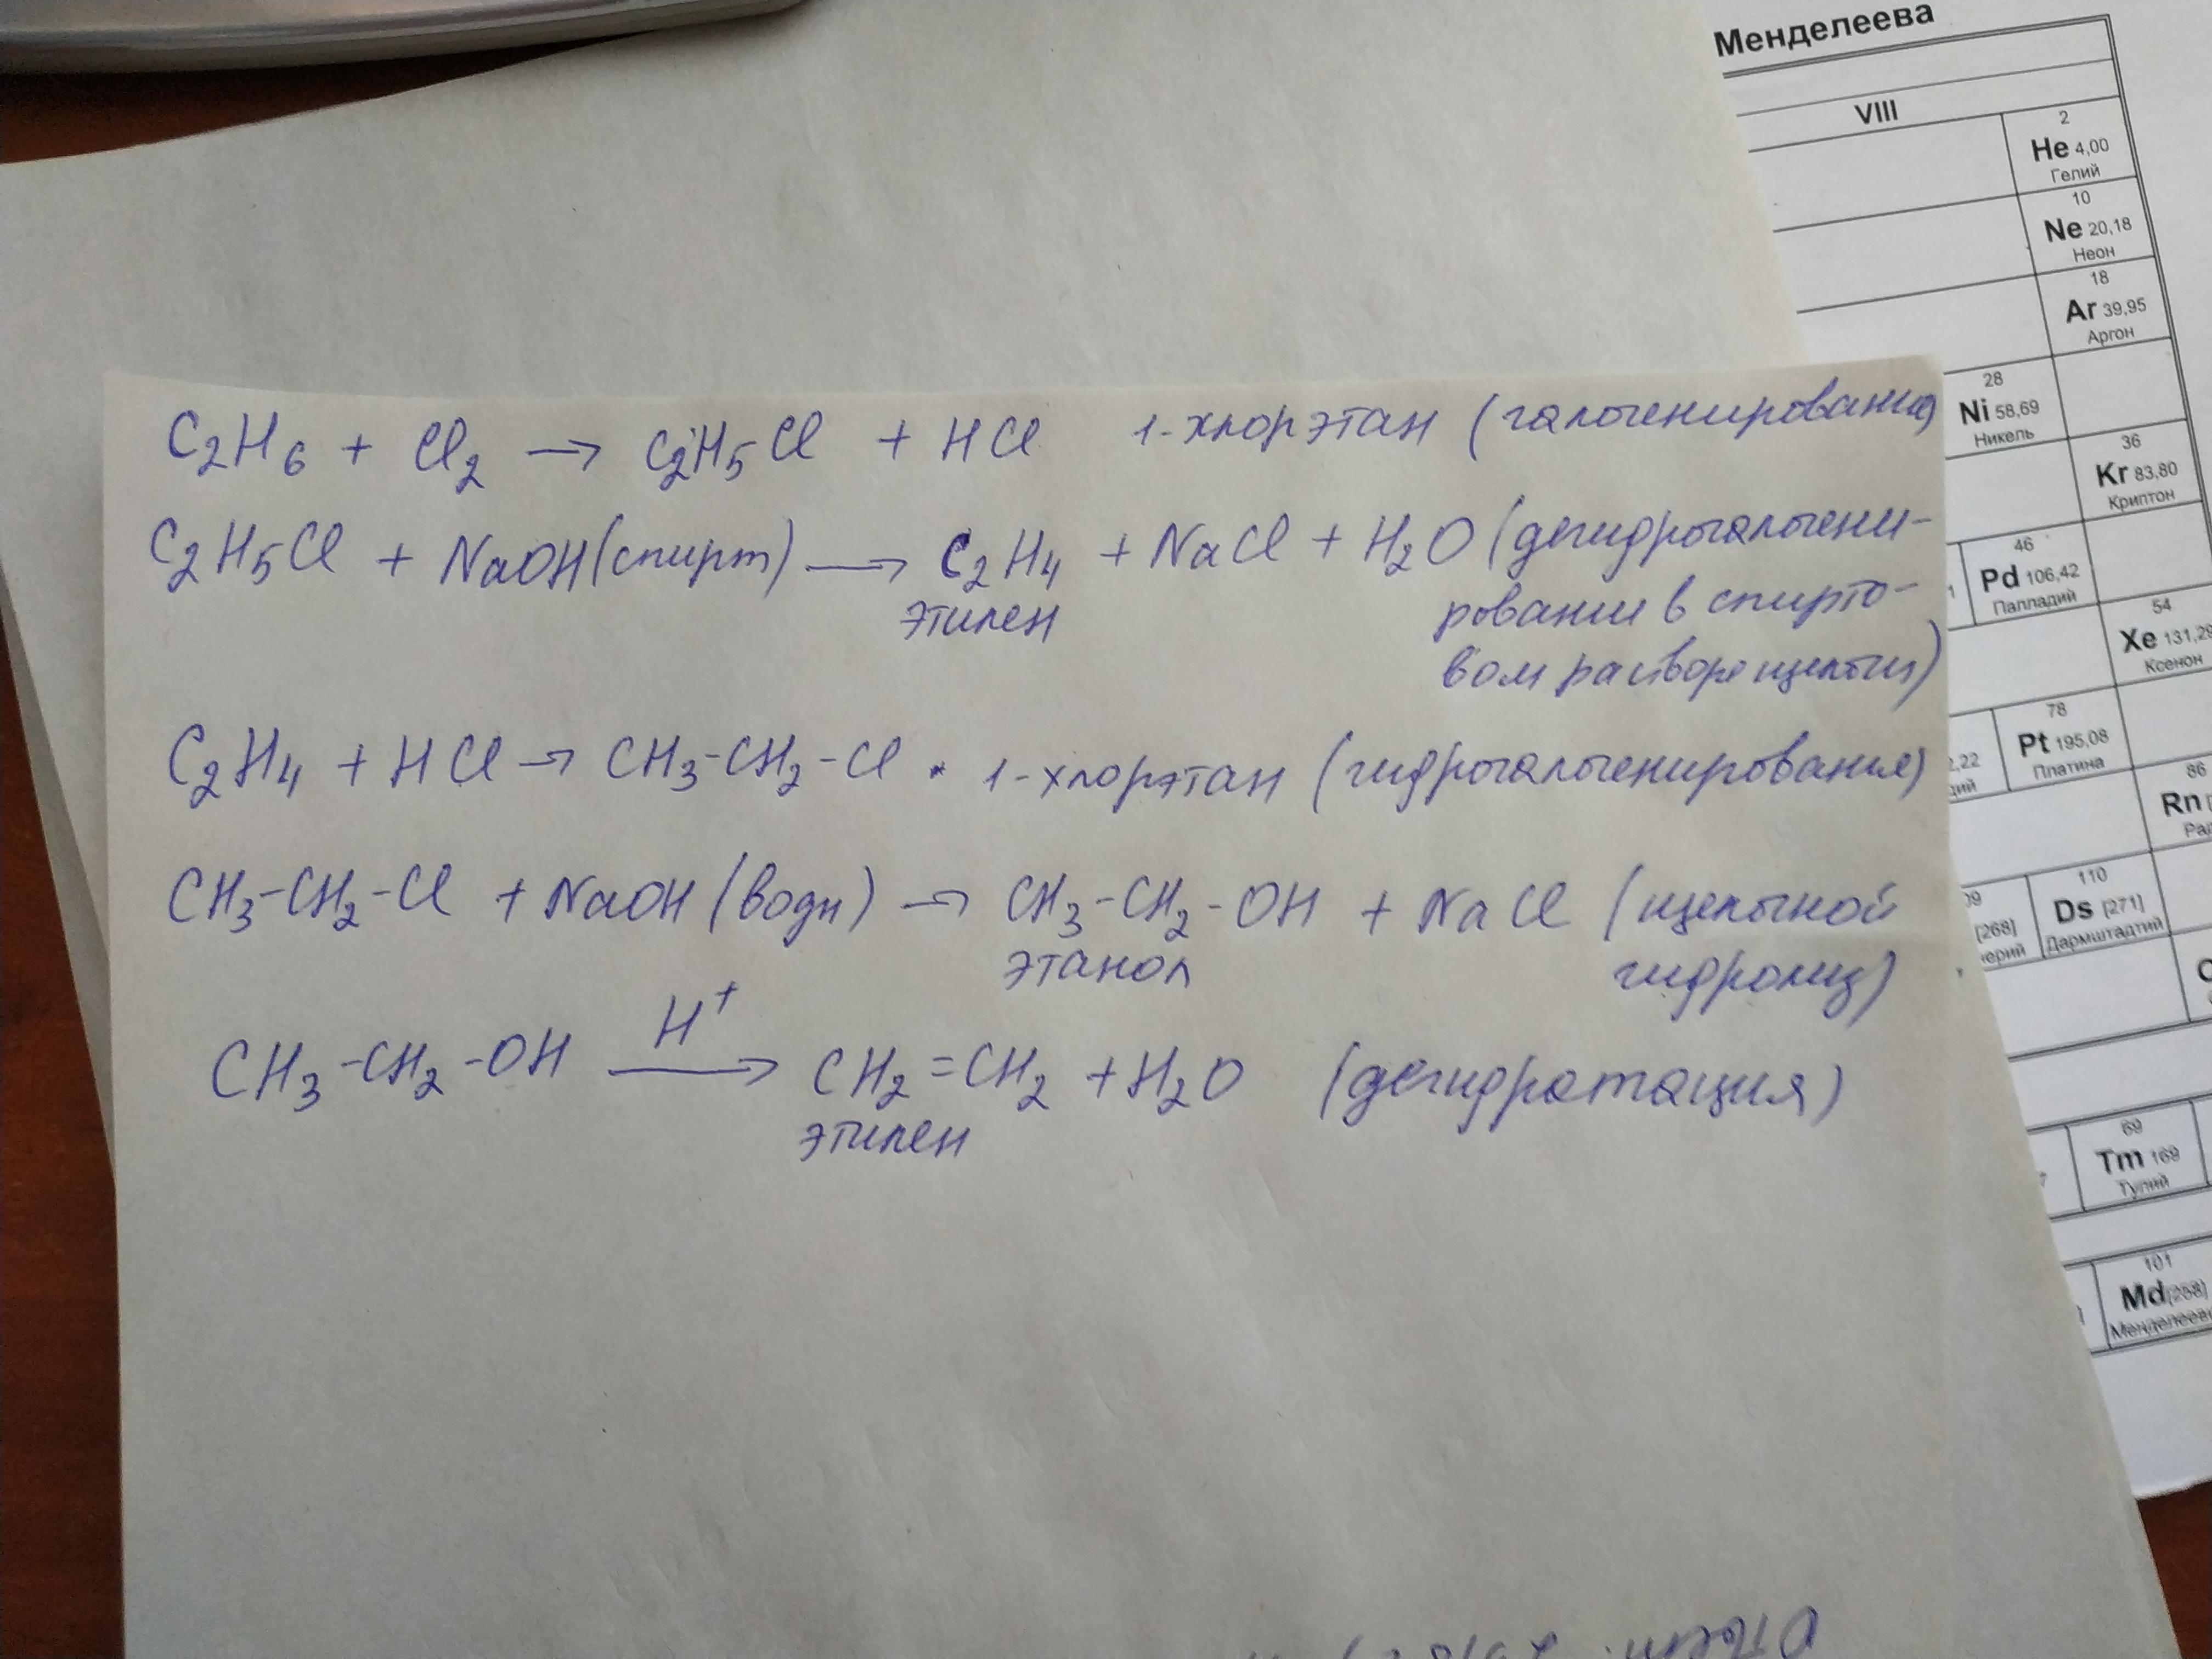 Менделеева
VIII
2
He 4,00
Гелий
10
Ne 20,18
Неон
18
Ar 39,95
Аргон
28
Ni 58,69
Никель
36
Kr 83,80
Криптон
46
Pd 106,42
Палладий
54
Xe 131,29
Ксенон
78
Pt 195,08
Платина
86
Rn
110
Ds [271]
Дармштадтий
[268]
69
Tm 169
Тулий
101
Md [258]
C₂H₆ + Cl₂ → C₂H₅Cl + HCl 1-хлорэтан (галогенирование)
C₂H₅Cl + NaOH (спирт) → C₂H₄ + NaCl + H₂O (дегидрогалогени-
этилен рование в спирто-
вом растворе щелочи)
C₂H₄ + HCl → CH₃-CH₂-Cl • 1-хлорэтан (гидрогалогенирование)
CH₃-CH₂-Cl + NaOH (водн) → CH₃-CH₂-OH + NaCl (щелочной
этанол гидролиз)
H⁺
CH₃-CH₂-OH → CH₂=CH₂ + H₂O (дегидратация)
этилен